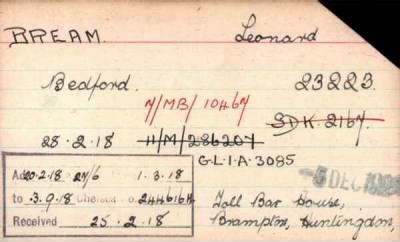 BREAM. Leonard
Bedford. 23223.
7/MB/10467
SDK. 2167.
28.2.18 11/M/286207
G.L.I.A. 3085
20.2.18 27/6 1.3.18
to 3.9.18 Chelsea
Received 25.2.18
5 DEC
Toll Bar House,
Brampton, Huntingdon,